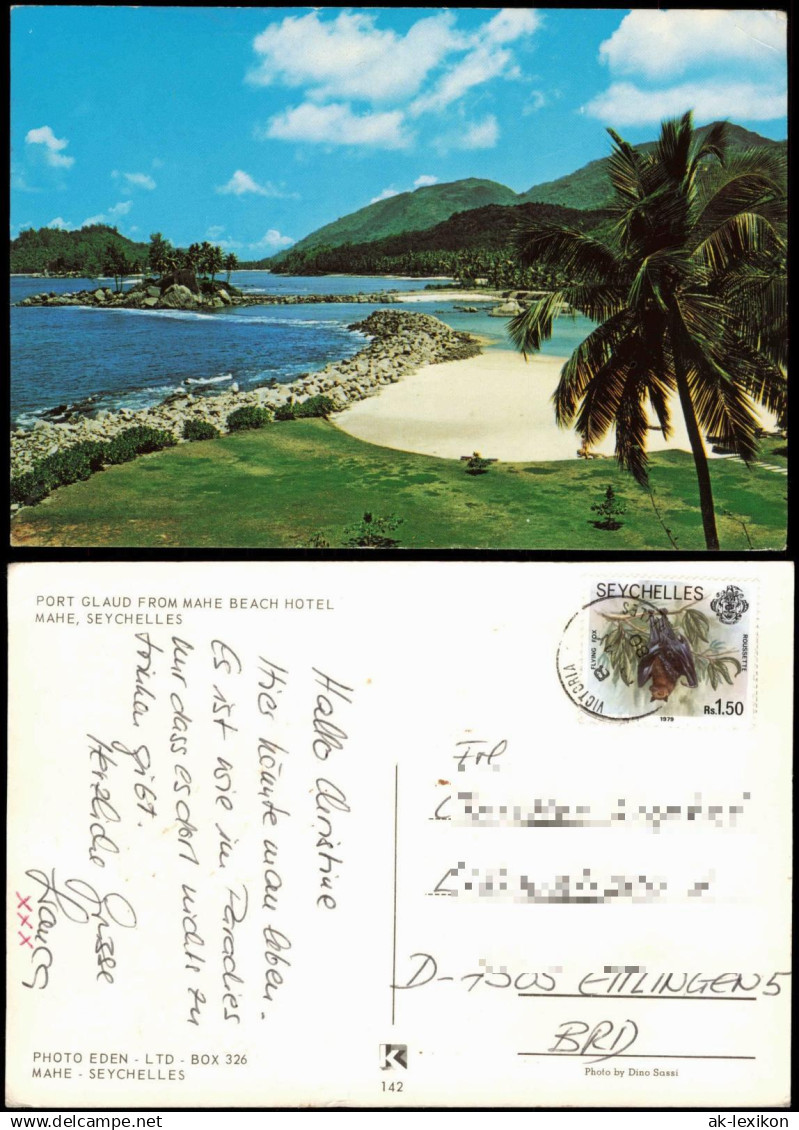 PORT GLAUD FROM MAHE BEACH HOTEL
MAHE, SEYCHELLES
Hallo Christine
Hier könnte man leben.
Es ist wie im Paradies
Nur dass es dort nichts zu
trinken gibt.
Herzliche Grüsse
xxx
PHOTO EDEN - LTD - BOX 326
MAHE - SEYCHELLES
K
142
SEYCHELLES
FLYING FOX
ROUSSETTE
Rs.1.50
1979
VICTORIA
Frl
D-7505 ETTLINGEN 5
BRD
Photo by Dino Sassi
© ak-lexikon